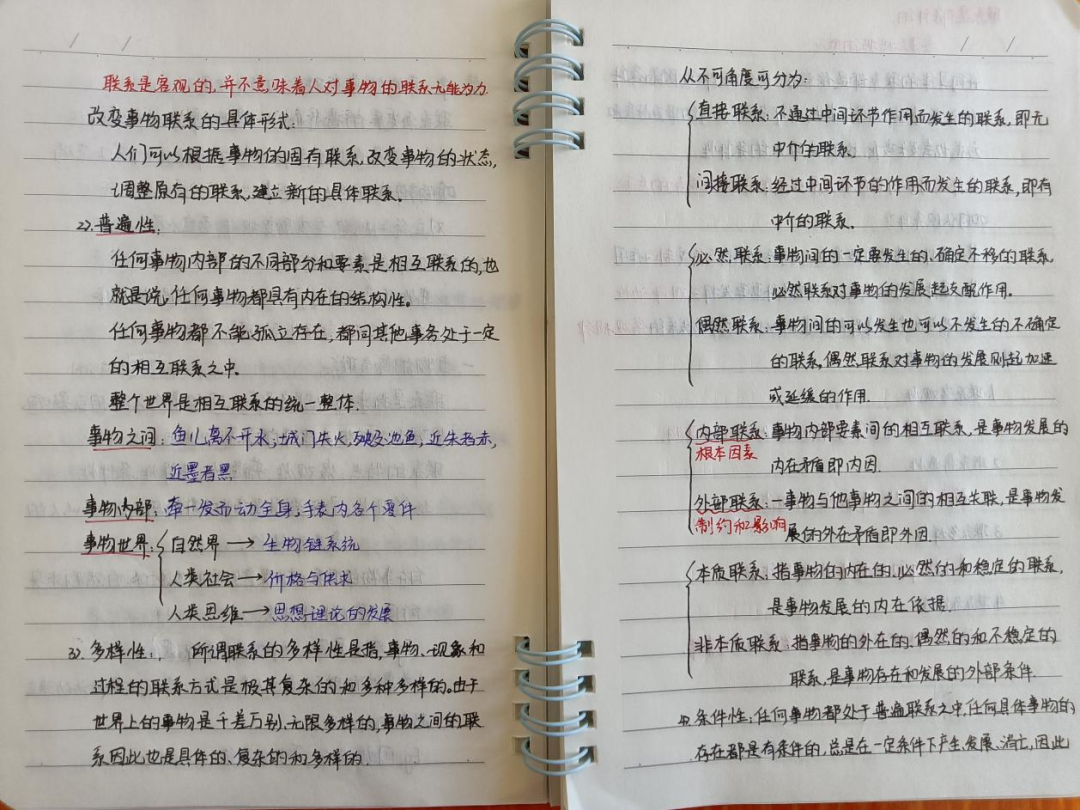 联系是客观的,并不意味着人对事物的联系无能为力.
改变事物联系的具体形式:
人们可以根据事物的固有联系,改变事物的状态,
调整原有的联系,建立新的具体联系。
22.普遍性:
任何事物内部的不同部分和要素是相互联系的,也
就是说,任何事物都具有内在的结构性。
任何事物都不能孤立存在,都同其他事务处于一定
的相互联系之中.
整个世界是相互联系的统一整体.
事物之间:鱼儿离不开水;城门失火,殃及池鱼;近朱者赤,
近墨者黑
事物内部:牵一发而动全身,手表内各个零件
事物世界:自然界→生物链系统
人类社会→价格与供求
人类思维→思想理论的发展
33.多样性: 所谓联系的多样性是指,事物、现象和
过程的联系方式是极其复杂的和多种多样的。由于
世界上的事物是千差万别、无限多样的,事物之间的联
系因此也是具体的、复杂的和多样的.
从不可角度可分为:
直接联系:不通过中间环节作用而发生的联系,即无
中介的联系.
间接联系:经过中间环节的作用而发生的联系,即有
中介的联系.
必然联系:事物间的一定要发生的、确定不移的联系,
必然联系对事物的发展起支配作用。
偶然联系:事物间的可以发生也可以不发生的不确定
的联系,偶然联系对事物的发展则起加速
或延缓的作用.
内部联系:事物内部要素间的相互联系,是事物发展的
根本因素
内在矛盾即内因.
外部联系:一事物与他事物之间的相互关联,是事物发
制约和影响
展的外在矛盾即外因.
本质联系:指事物的内在的、必然的和稳定的联系,
是事物发展的内在依据.
非本质联系:指事物的外在的、偶然的和不稳定的
联系,是事物存在和发展的外部条件.
条件性:任何事物都处于普遍联系之中,任何具体事物的
存在都是有条件的,总是在一定条件下产生、发展、消亡,因此